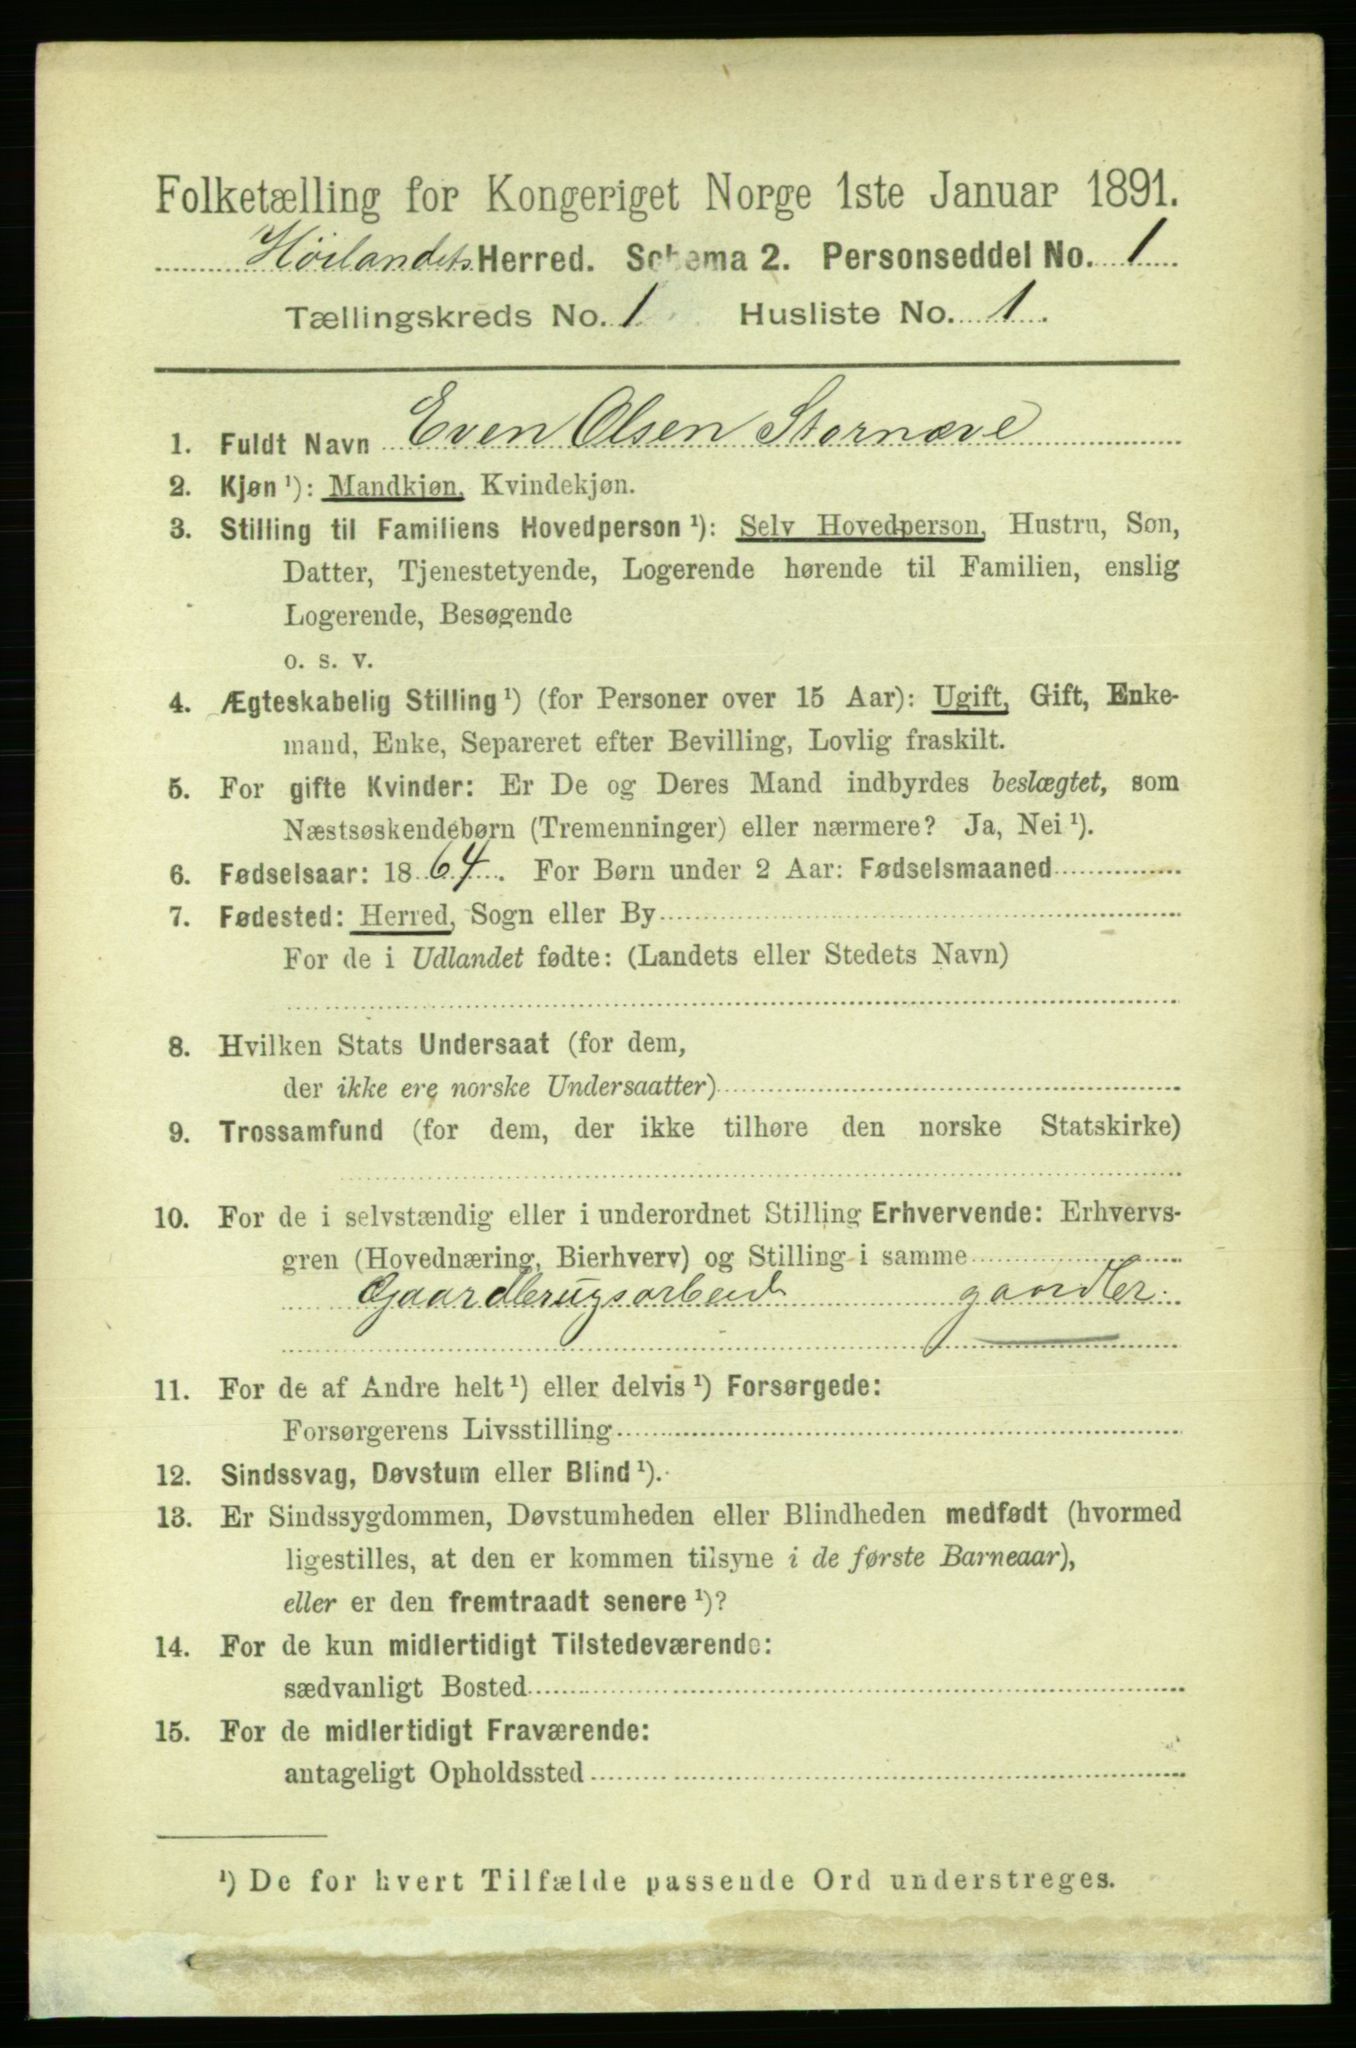 Folketælling for Kongeriget Norge 1ste Januar 1891.
Höilandets Herred. Schema 2. Personseddel No. 1
Tællingskreds No. 1 Husliste No. 1.
1. Fuldt Navn Even Olsen Stornæve
2. Kjøn ¹): Mandkjøn, Kvindekjøn.
3. Stilling til Familiens Hovedperson ¹): Selv Hovedperson, Hustru, Søn,
Datter, Tjenestetyende, Logerende hørende til Familien, enslig
Logerende, Besøgende
o. s. v.
4. Ægteskabelig Stilling ¹) (for Personer over 15 Aar): Ugift, Gift, Enke-
mand, Enke, Separeret efter Bevilling, Lovlig fraskilt.
5. For gifte Kvinder: Er De og Deres Mand indbyrdes beslægtet, som
Næstsøskendebørn (Tremenninger) eller nærmere? Ja, Nei ¹).
6. Fødselsaar: 1864. For Børn under 2 Aar: Fødselsmaaned
7. Fødested: Herred, Sogn eller By
For de i Udlandet fødte: (Landets eller Stedets Navn)
8. Hvilken Stats Undersaat (for dem,
der ikke ere norske Undersaatter)
9. Trossamfund (for dem, der ikke tilhøre den norske Statskirke)
10. For de i selvstændig eller i underordnet Stilling Erhvervende: Erhvervs-
gren (Hovednæring, Bierhverv) og Stilling i samme
Gaardbrugsarbeid gaardbr.
11. For de af Andre helt ¹) eller delvis ¹) Forsørgede:
Forsørgerens Livsstilling
12. Sindssvag, Døvstum eller Blind ¹).
13. Er Sindssygdommen, Døvstumheden eller Blindheden medfødt (hvormed
ligestilles, at den er kommen tilsyne i de første Barneaar),
eller er den fremtraadt senere ¹)?
14. For de kun midlertidigt Tilstedeværende:
sædvanligt Bosted
15. For de midlertidigt Fraværende:
antageligt Opholdssted
¹) De for hvert Tilfælde passende Ord understreges.